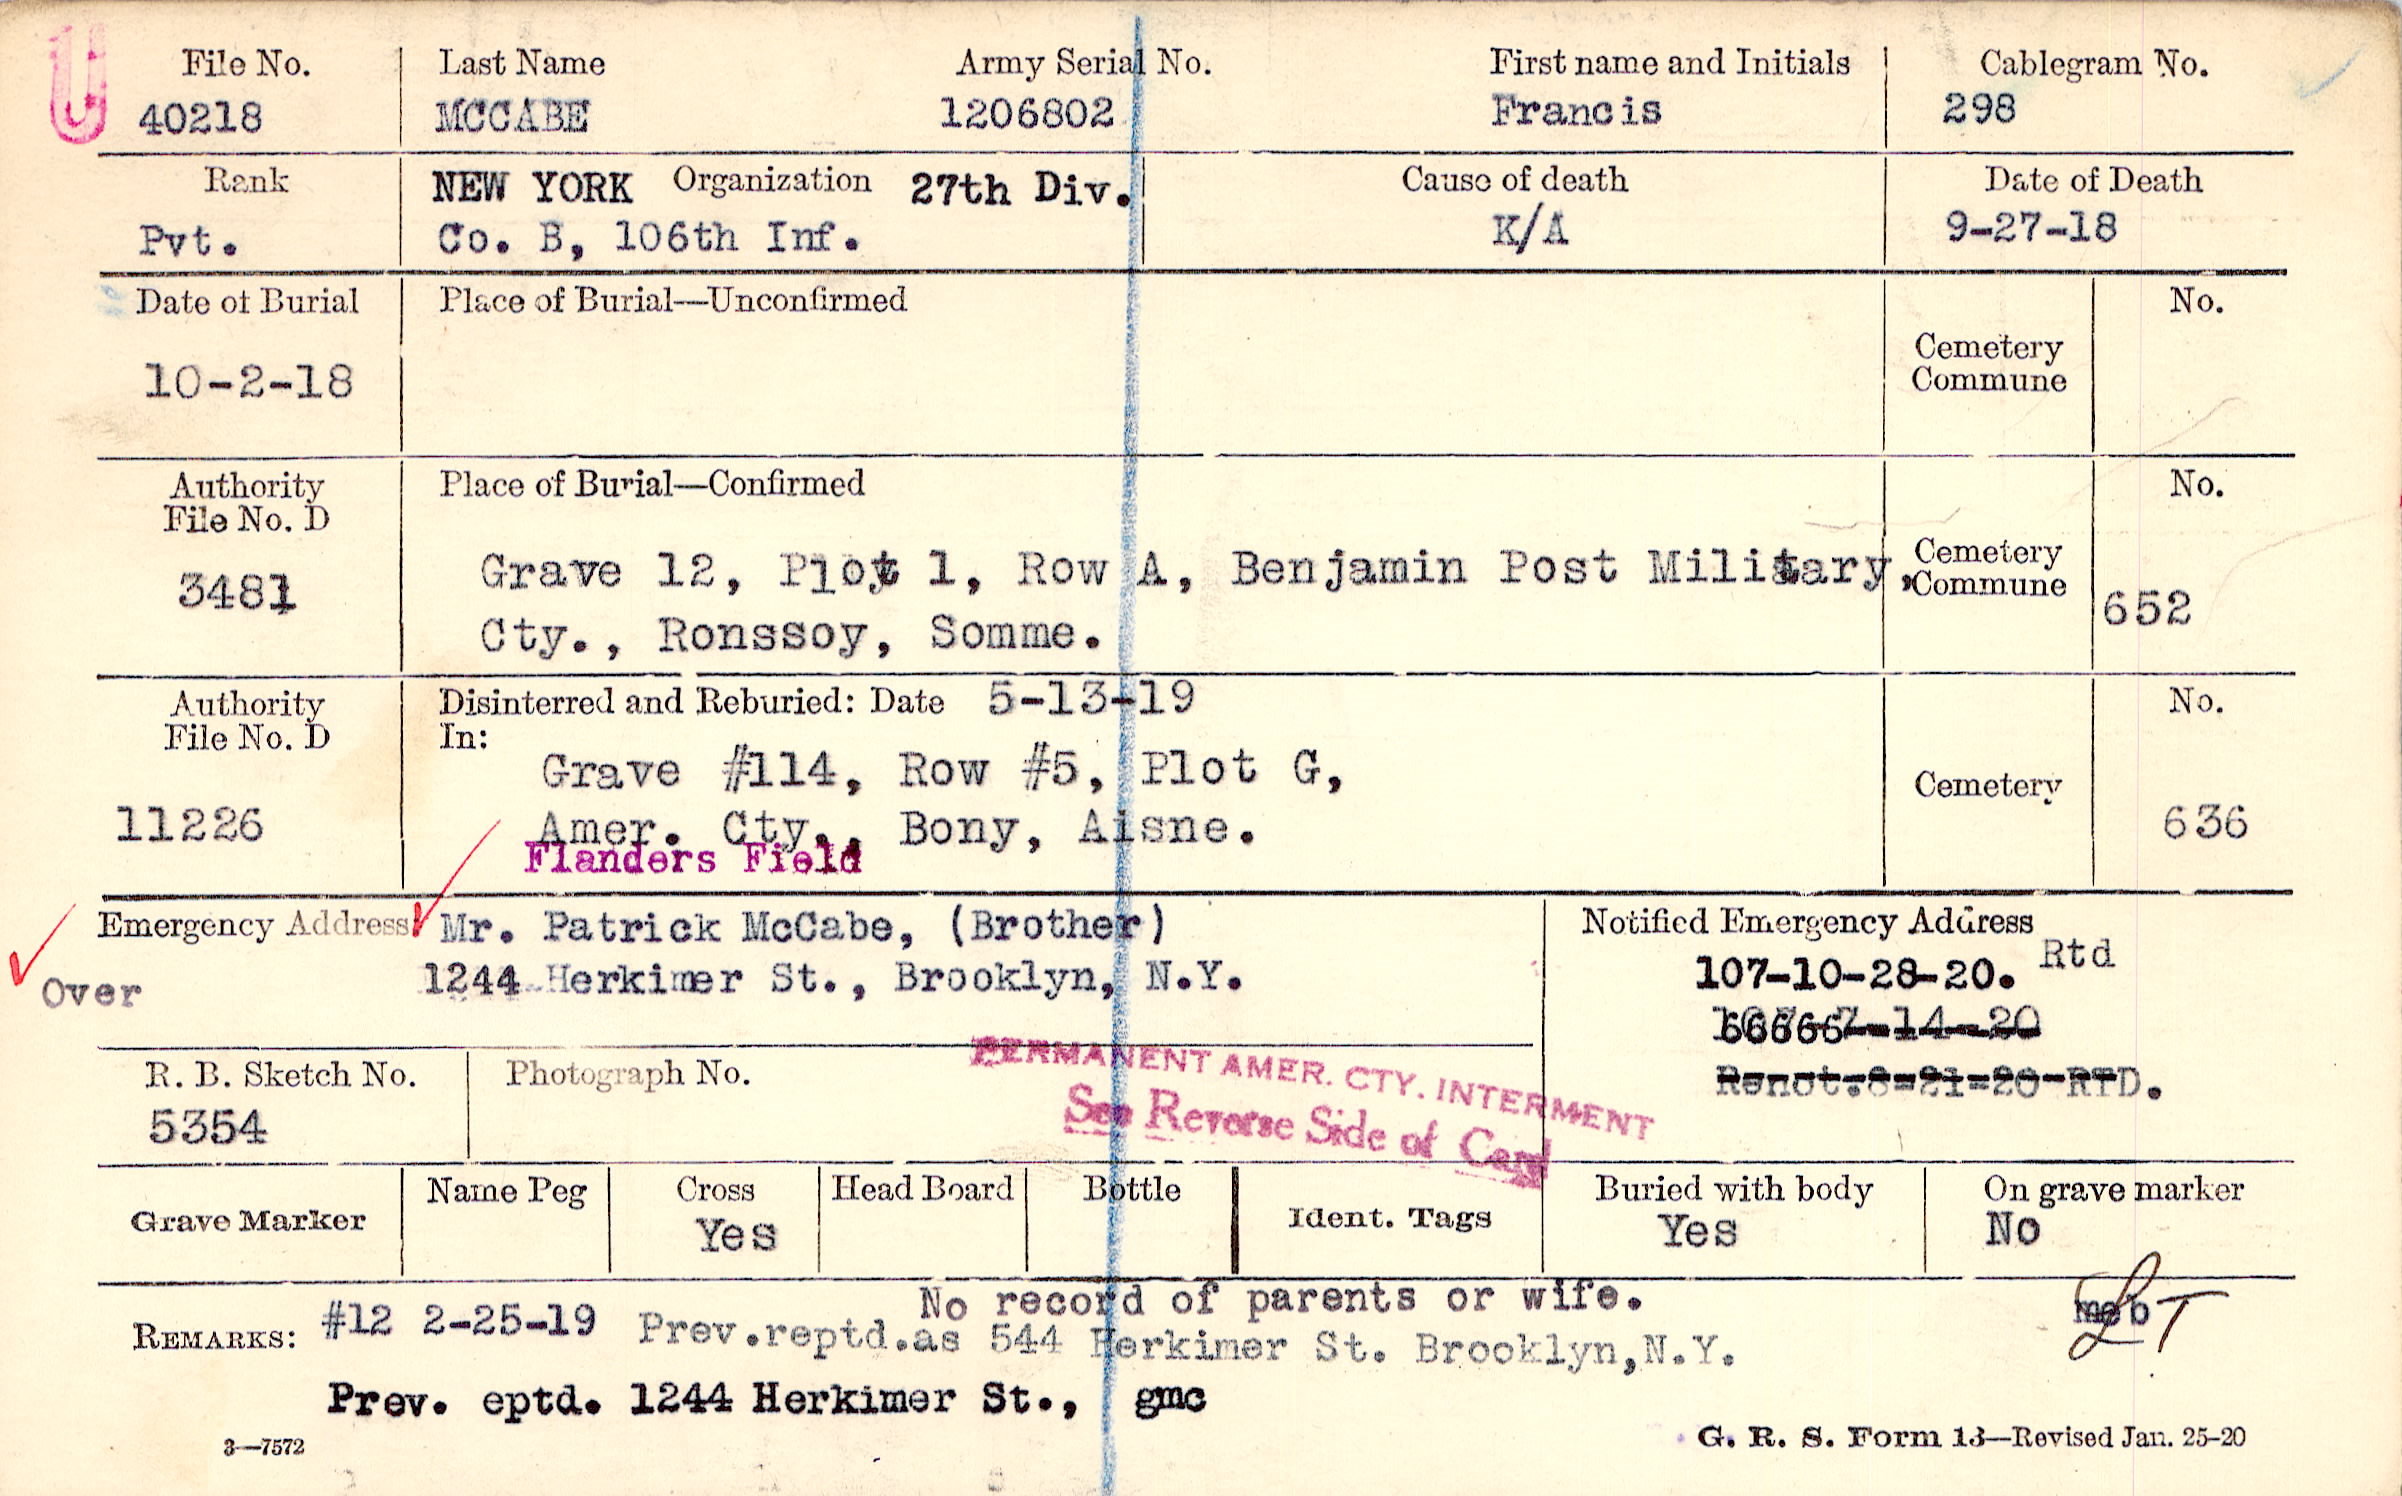 File No. Last Name Army Serial No. First name and Initials Cablegram No.
40218 MCCABE 1206802 Francis 298
Rank NEW YORK Organization 27th Div. Cause of death Date of Death
Pvt. Co. B, 106th Inf. K/A 9-27-18
Date of Burial Place of Burial—Unconfirmed No.
10-2-18 Cemetery
Commune
Authority Place of Burial—Confirmed No.
File No. D
3481 Grave 12, Plot 1, Row A, Benjamin Post Military, Cemetery
Commune 652
Cty., Ronssoy, Somme.
Authority Disinterred and Reburied: Date 5-13-19 No.
File No. D In:
Grave #114, Row #5, Plot G, Cemetery
11226 Amer. Cty., Bony, Aisne. 636
Flanders Field
Emergency Address: Mr. Patrick McCabe, (Brother) Notified Emergency Address
Over 1244 Herkimer St., Brooklyn, N.Y. 107-10-28-20. Rtd
-7-14-20
Renot.8-21-20-RTD.
R. B. Sketch No. Photograph No. PERMANENT AMER. CTY. INTERMENT
5354 See Reverse Side of Card
Grave Marker Name Peg Cross Head Board Bottle Ident. Tags Buried with body On grave marker
Yes Yes No
No record of parents or wife.
REMARKS: #12 2-25-19 Prev.reptd.as 544 Herkimer St. Brooklyn,N.Y.
Prev. eptd. 1244 Herkimer St., gmc
3—7572 G. R. S. Form 13—Revised Jan. 25-20